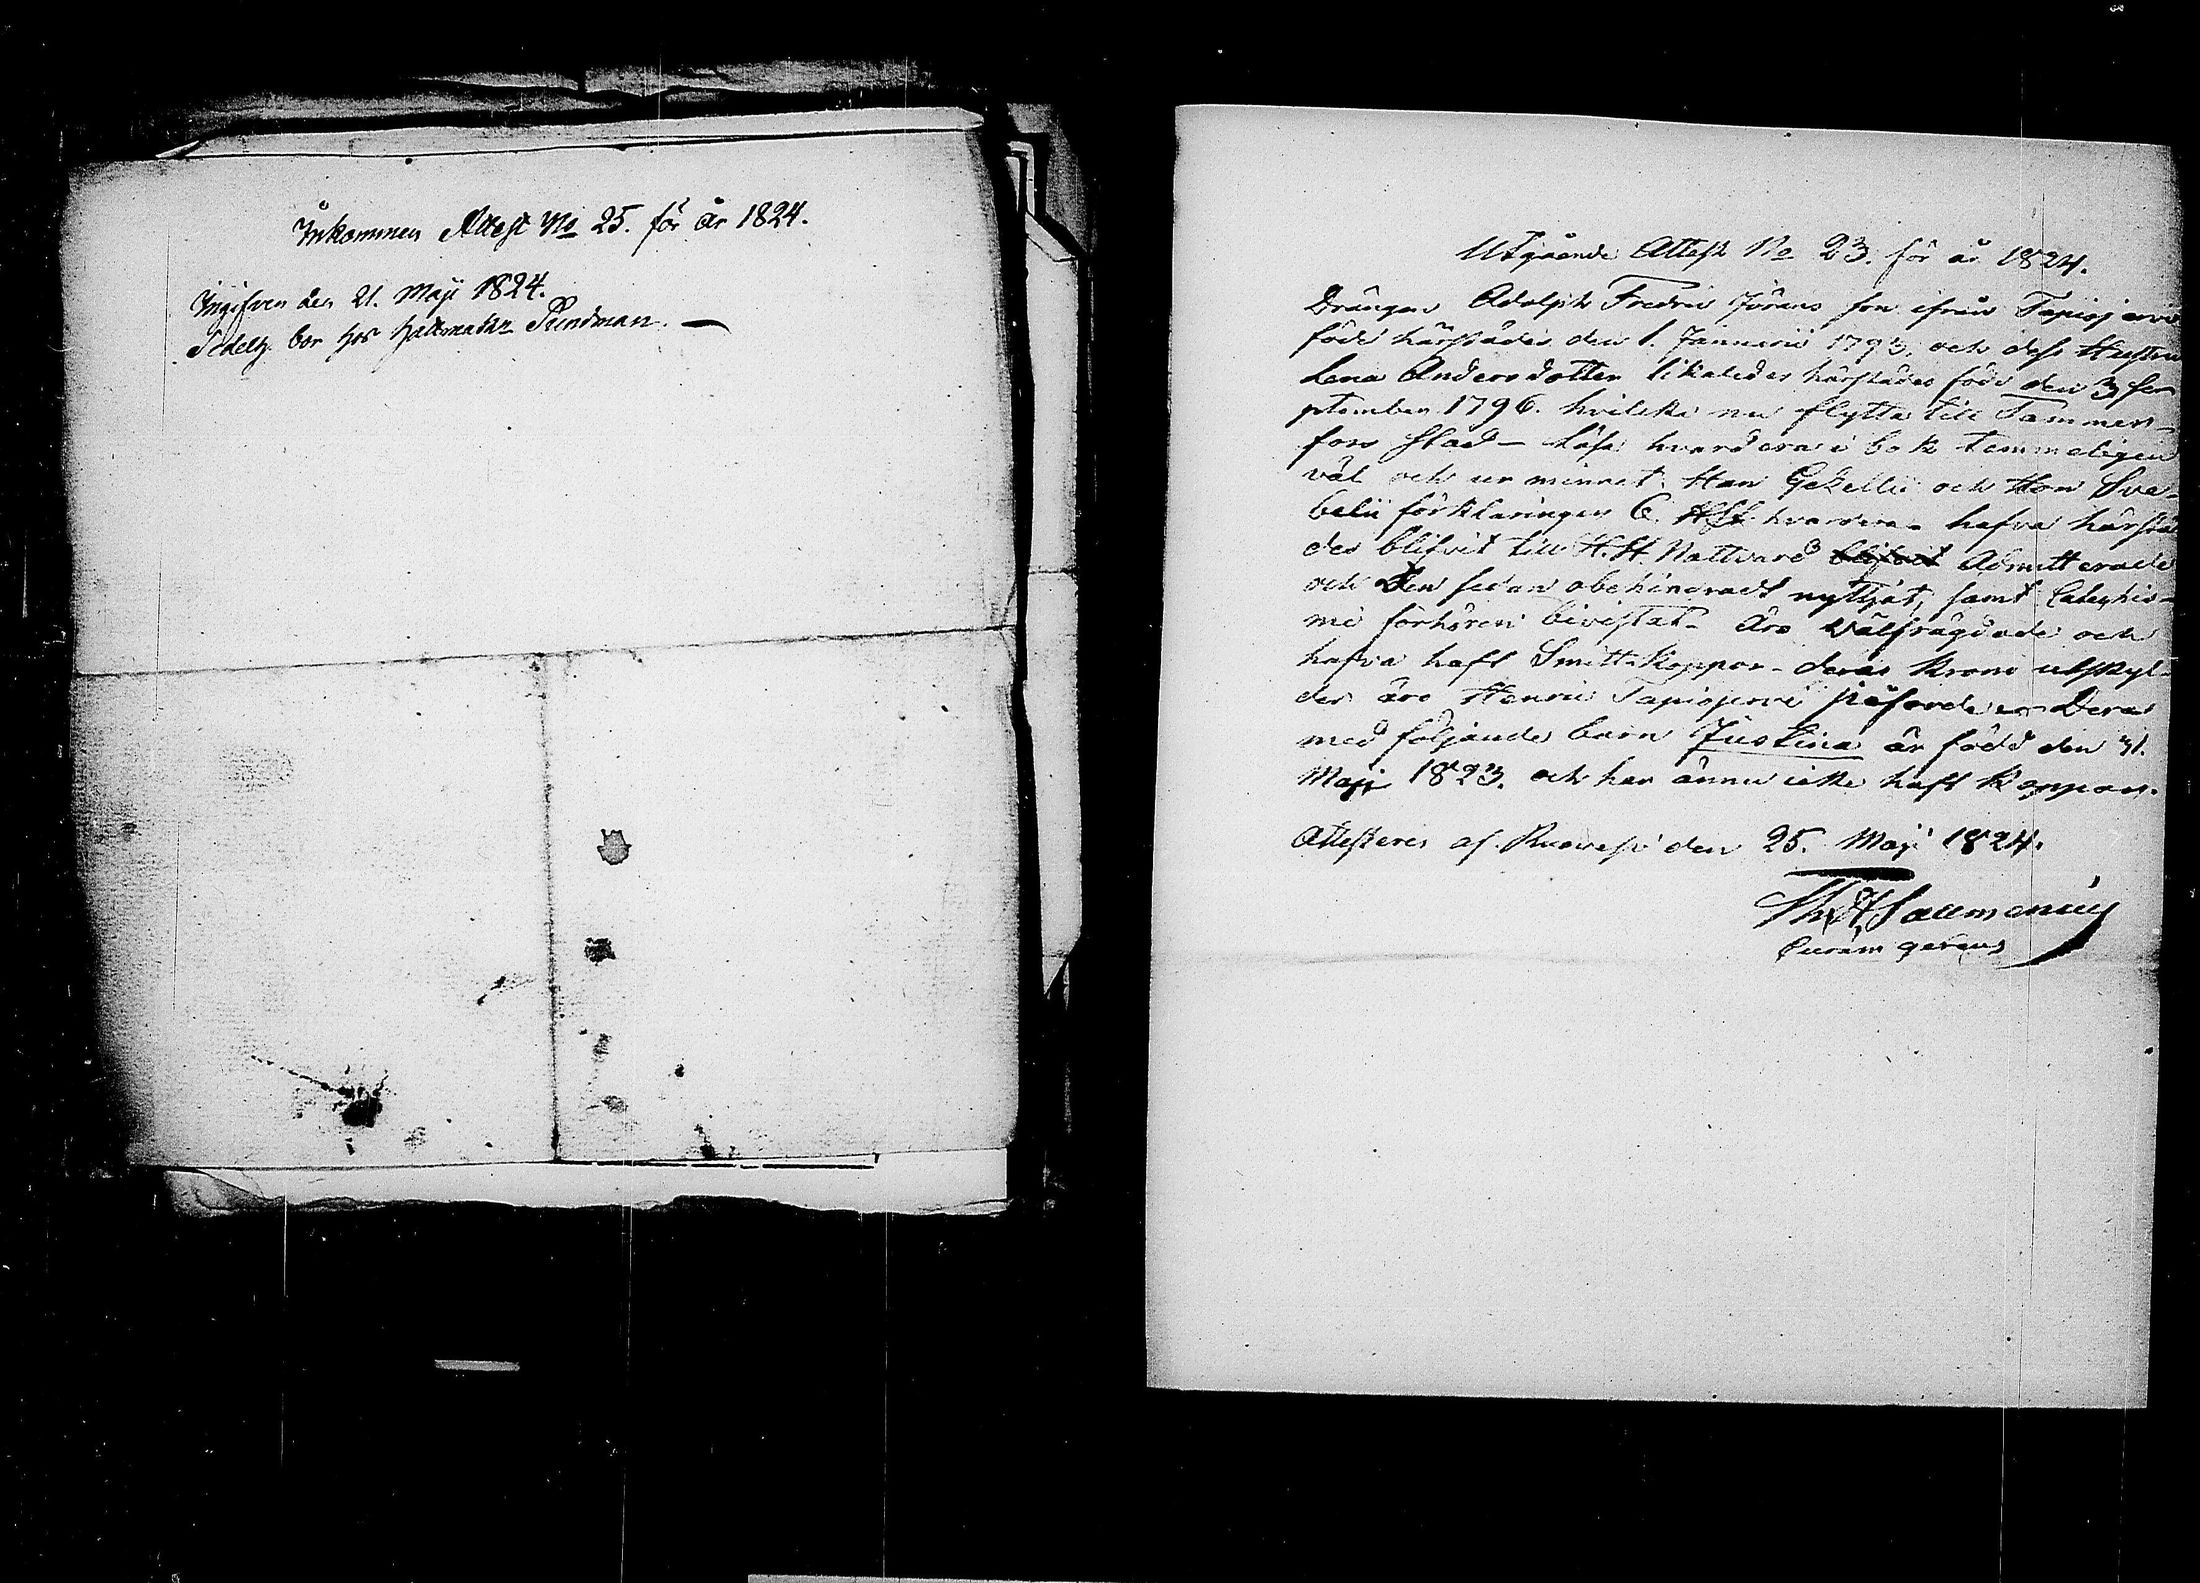 Inkommen Attest No 25. för år 1824.
Ingifven den 21. Maji 1824.
bor hos hattmakr Sundman.
Utgående Attest No 23. för år 1824.
Drängen Adolph Fredric Jörans son ifrån Tapiojervi
född härstädes den 1. Januarii 1793, och dess Hustru
Lena Andersdotter likaledes härstädes född den 3 Se-
ptember 1796. hvilka nu flytta till Tammer-
fors Stad – läsa hvardera i bok temmeligen
väl och ur minnet. Han Gezelii och Hon Sve-
belii förklaringen 6. HSt. hvardera – hafva härstä
des blifvit till H. H. Nattvard blifvit Admitterade
och Den sedan obehindradt nyttjat, samt Catechis-
mi förhören bivistat – äro välfrägdade och
hafva haft Smitt-Koppor – deras Krono utskyl-
der äro Henric Tapiojervi påförde – Deras
med följande barn Justina är född den 31.
Maji 1823. och har ännu icke haft Koppor.
Attesteres af Ruovesi den 25. Maji 1824.
Th. H. Sallmenius
Curam gerens